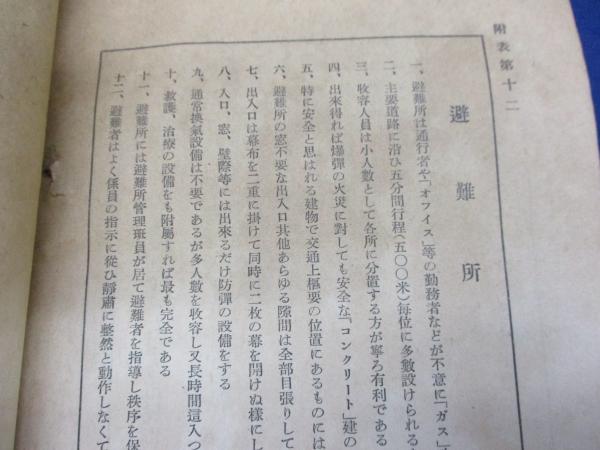 附表第十二
避難所
一、避難所は通行者や「オフイス」等の勤務者などが不意に「ガス」
二、主要道路に沿ひ五分間行程(五〇〇米)毎位に多數設けられる
三、收容人員は小人數として各所に分置する方が寧ろ有利である
四、出來得れば爆彈の火災に對しても安全な「コンクリート」建の
五、特に安全と思はれる建物で交通上樞要の位置にあるものには
六、避難所の窓不要な出入口其他あらゆる隙間は全部目張りして
七、出入口は幕布を二重に掛けて同時に二枚の幕を開けぬ樣にし
八、入口、窓、壁際等には出來るだけ防彈の設備をする
九、通常換氣設備は不要であるが多人數を收容し又長時間這入つ
十、救護、治療の設備をも附屬すれば最も完全である
十一、避難所には避難所管理班員が居て避難者を指導し秩序を保
十二、避難者はよく係員の指示に從ひ靜肅に整然と動作しなくて